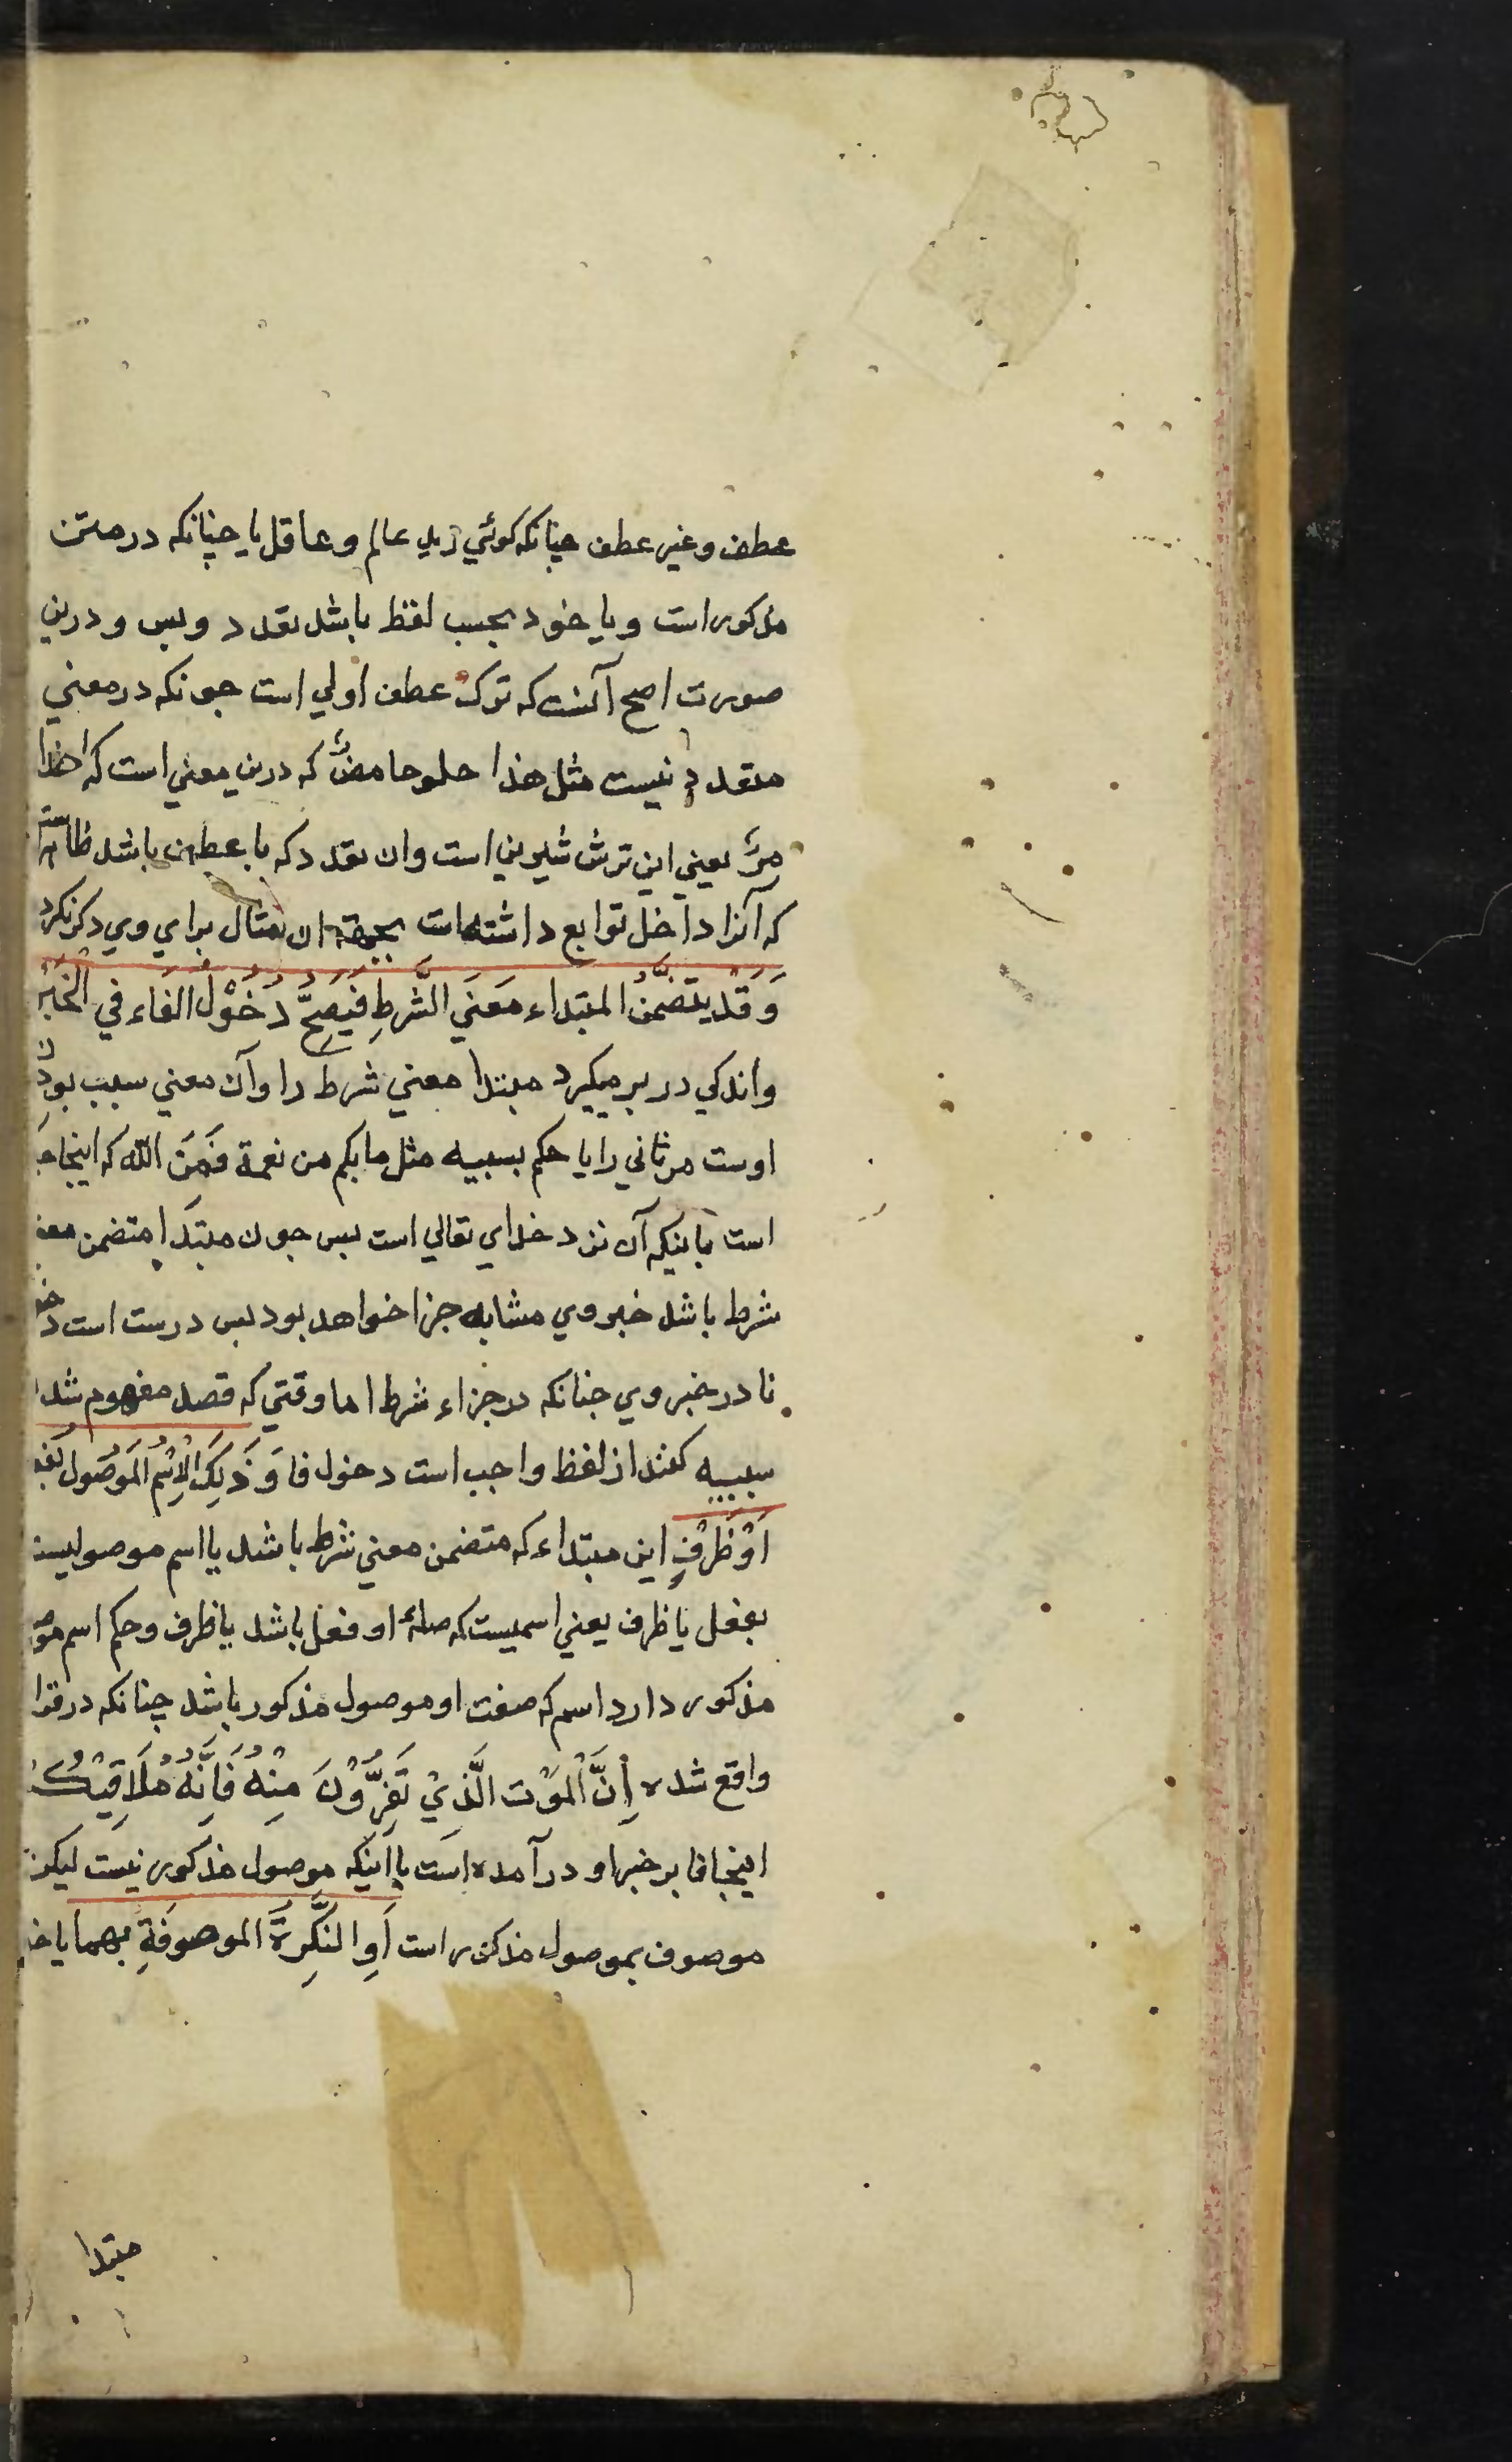 عطف و غیر عطف چنانکه کوئي زید عالم و عاقل یا چنانکه در متن
مذکور است و یا خود بحسب لفظ باشد تعدد و بس و درین
صورت اصح آنست که ترک عطف اولي است چونکه در معني
متعدد نیست مثل هذا حلو حامض که درین معني است که هذا
مز یعني این ترش شیرین است وان تعدد که با عطف باشد
که آنرا داخل توابع داشته است بجهة ان مثال براي وي ذکر نکرد
وَقَدْ يتضمَّنُ المبتداء مَعنَي الشَّرطِ فَيَصِحُّ دُخُوْلُ الفَاء في الْخَبَرْ
واندکي در بر میکیرد مبتدا معني شرط را وآن معني سبب بودن
اوست مر ثاني را یا حکم بسببیه مثل ما بکم من نعمة فَمِنَ الله که اینجا
است باینکه آن نزد خداي تعالي است پس چون مبتدا متضمن
شرط باشد خبر وي مشابه جزا خواهد بود پس درست است
فا در خبر وي چنانکه در جزاء شرط اما وقتي که قصد مفهوم شدا
سببیه کنند از لفظ واجب است دخول فا وَذَلِكَ الْاِسْمُ المَوصُول
اَوْظَرْفٍ این مبتداء که متضمن معني شرط باشد یا اسم موصولیست
بفعل یا ظرف یعني اسمیست که صلهٔ او فعل باشد یا ظرف وحکم اسم
مذکور دارد اسم که صفت او موصول مذکور باشد چنانکه در
واقع شده اِنَّ الْمَوْت الَّذِيْ تَفِرُّوْنَ مِنْهُ فَاِنَّهُ مُلَاقِيْكُ
اینجا فا بر خبر او در آمده است با اینکه موصول مذکور نیست لیکن
موصوف بموصول مذکور است اَوِ النَّكِرَةَ الموصوفَةِ بهما یا
مبتدا